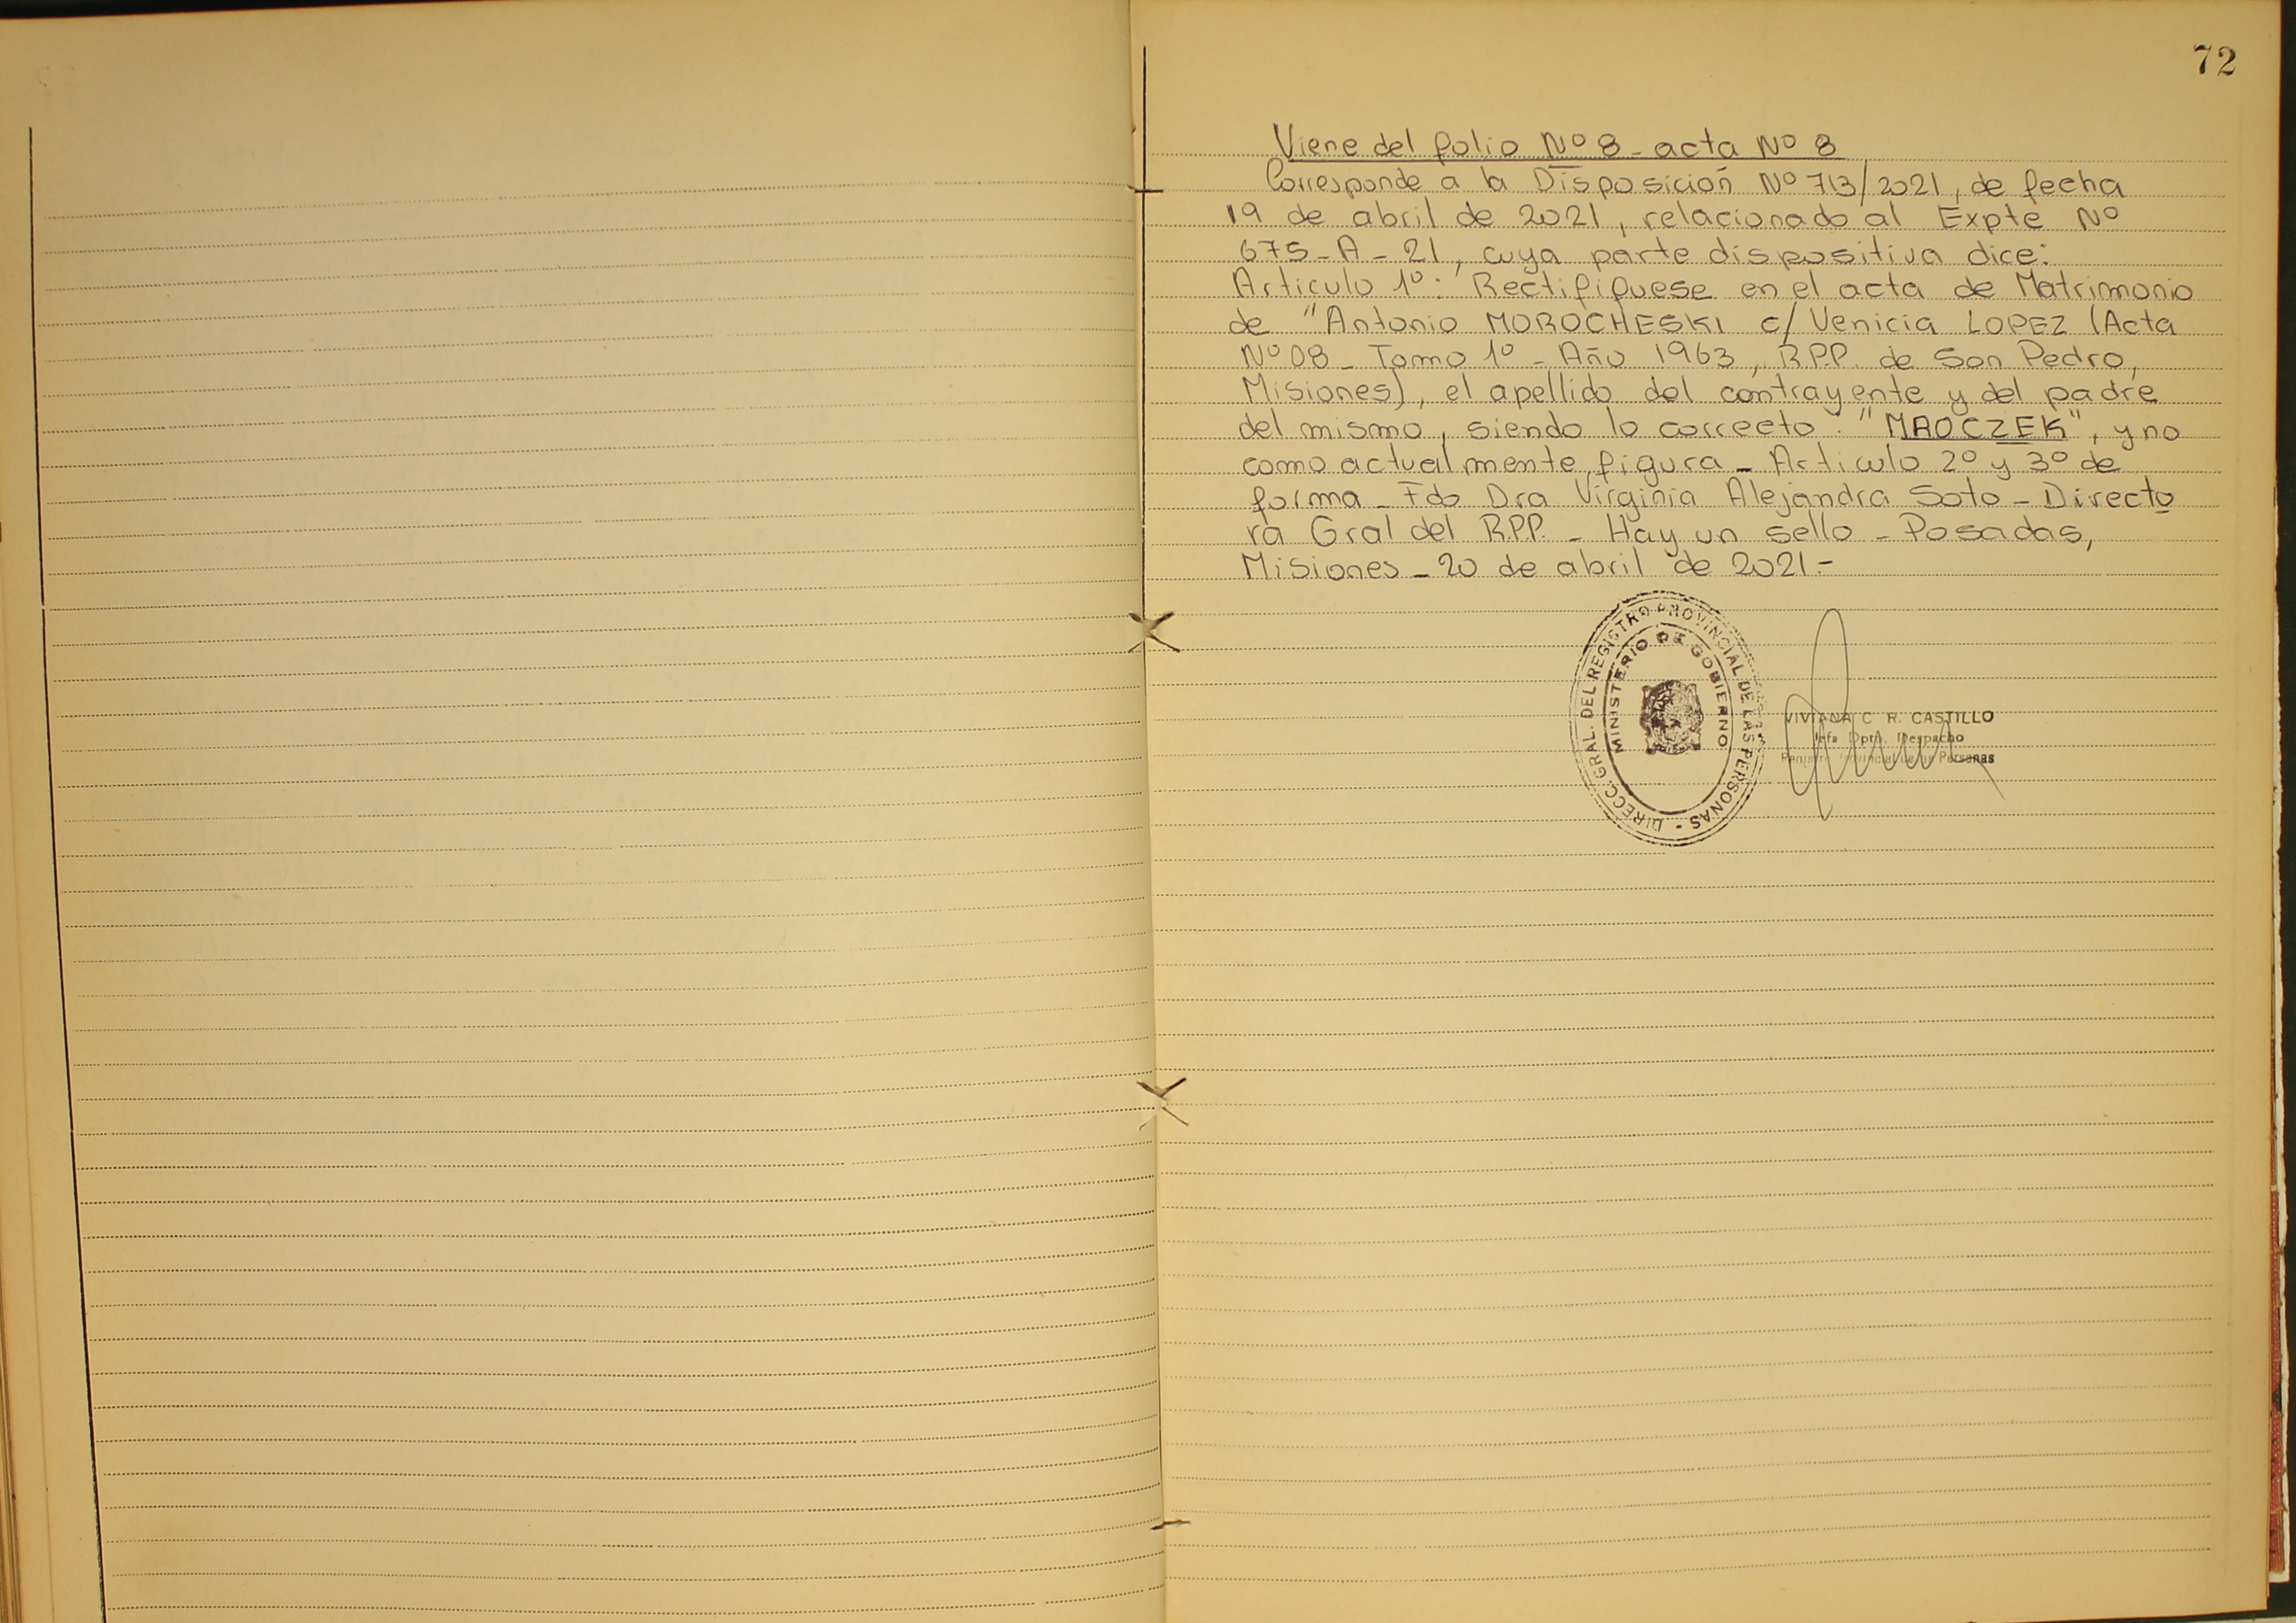 72
Viene del folio Nº 8 - acta Nº 8
Corresponde a la Disposición Nº 713/2021, de fecha
19 de abril de 2021, relacionado al Expte Nº
675-A-21, cuya parte dispositiva dice:
Articulo 1º: Rectifíquese en el acta de Matrimonio
de "Antonio MOROCHESKI c/ Venicia LOPEZ (Acta
Nº 08 - Tomo 1º - Año 1963, R.P.P. de San Pedro,
Misiones), el apellido del contrayente y del padre
del mismo, siendo lo correcto: "MROCZEK", y no
como actualmente figura - Articulo 2º y 3º de
forma - Fdo Dra Virginia Alejandra Soto - Directo
ra Gral del R.P.P. - Hay un sello - Posadas,
Misiones - 20 de abril de 2021.-
DIRECC. GRAL. DEL REGISTRO PROVINCIAL DE LAS PERSONAS -
MINISTERIO DE GOBIERNO
VIVIANA C. R. CASTILLO
Jefa Dpto. Despacho
Registro Provincial de las Personas